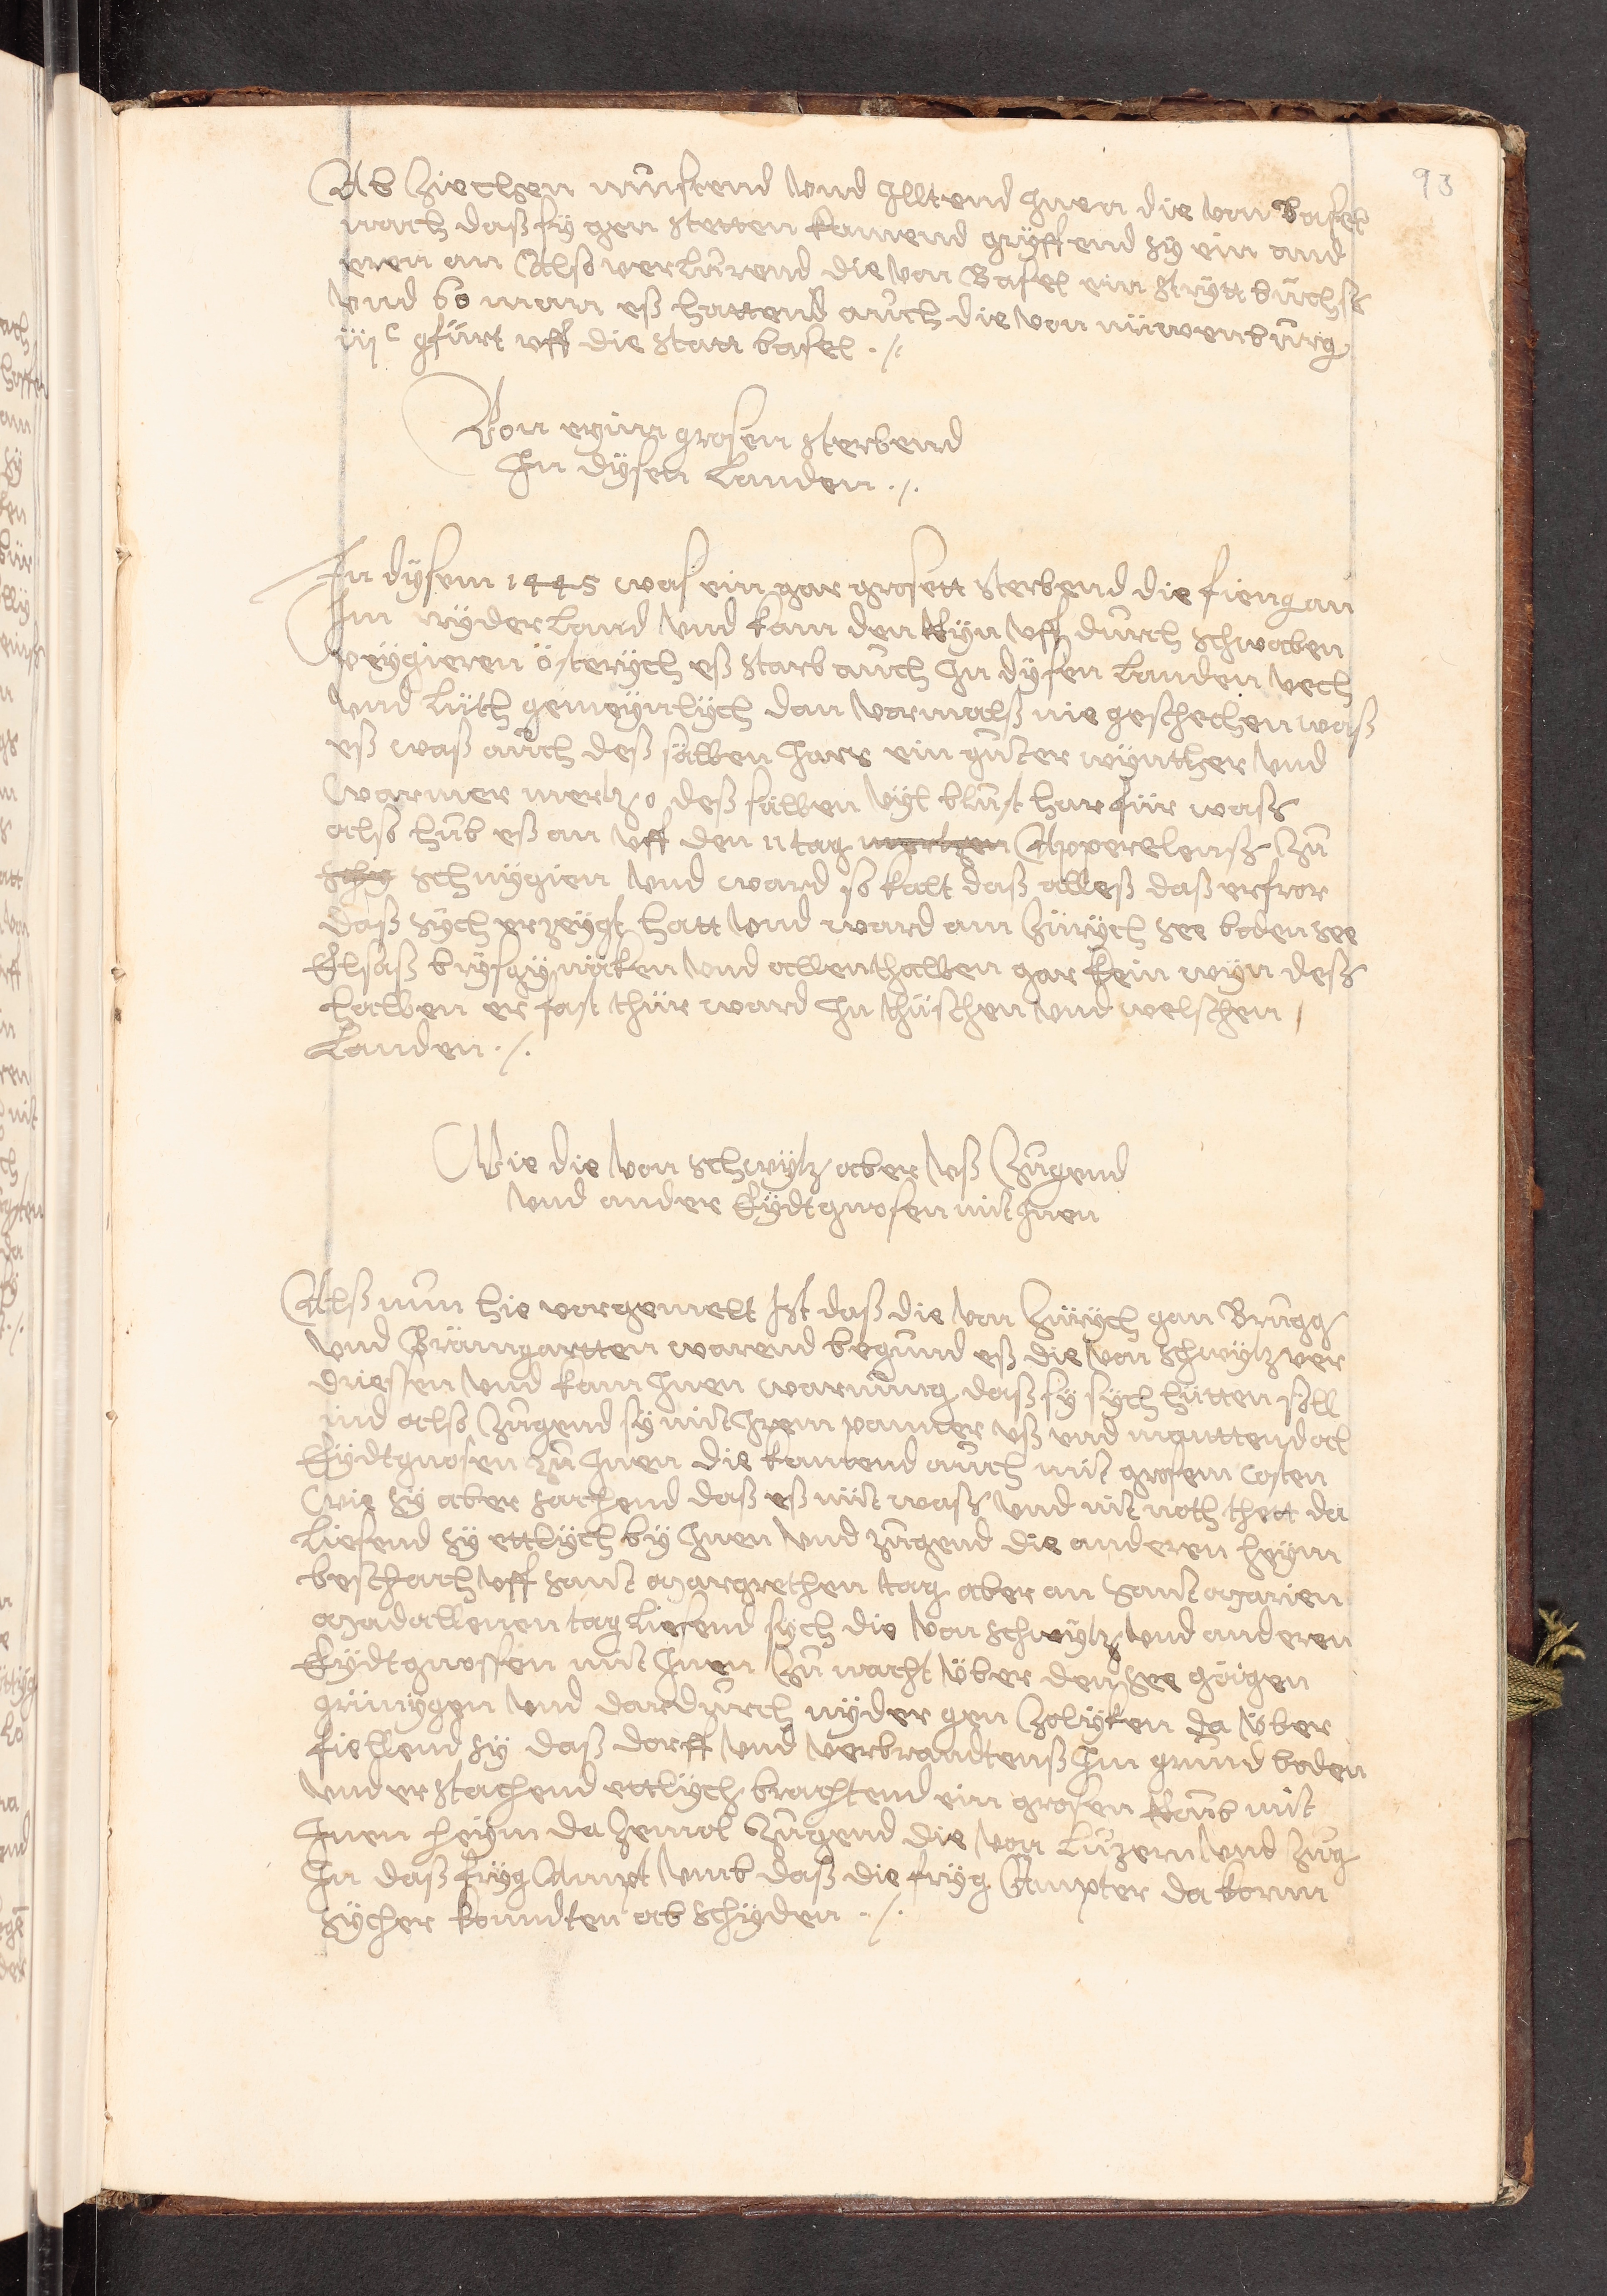 93
Ab Ziechen müstend Vnd Illtend Inen die von Basel
nach daß sÿ gen stetten kamend grÿffend sÿ ein and
eren an Also verlurend die von Basel ein strÿtt büchß
Vnd 60 man eß hattend auch die von nüwenburg
iijc gfürt vff die statt basel ./.
Von eynn grosen sterbend
In dÿsen Landen ./.
In dÿsem 1445 was ein gar grosett sterbend die fieng an
Im nÿderland Vnd kam den Rÿn Vff durch schwaben
peÿgieren österÿch eß starb auch In dÿsen Landen Vech
Vnd Lüth gemeÿnlÿch dan vormalß nie geschechen waß
eß waß auch deß sälben Jars ein guter wÿnther Vnd
warmer mertz deß sälben Vÿl blust harfür waß
alß hub eß an Vff den 11 tag mertzen Apperelenß Zu
schg schnÿgien Vnd ward so kalt daß alleß daß erfror
daß sÿch erzeÿgt hatt Vnd ward am Zürÿch see boden see
Elsaß brÿsgÿ näken Vnd allenthalben gar kein wÿn deß
halben er fast thür ward In thüschen Vnd welschen
Landen ./.
Wie die Von schwÿtz aber Vß Zugend
Vnd ander Eÿdtgnosen mit Inen
Alß nun hie vorgemelt Ist daß die Von Zürÿch gan Brugg
Vnd Brämgartten warend begund eß die Von schwÿtz ver
driessen Vnd kam Inen warnung daß sÿ sÿch hütten söll
ind alß Zugend sÿ mit Irem panner vß vnd manttend al
Eÿdtgnosen Zu Inen die kamend auch mit grosem costen
wie sÿ aber sachend daß eß nüt waß Vnd nit noth thett da
Liesend sÿ ettlÿch bÿ Inen Vnd zugend die anderen heÿm
beschach Vff sant margrethen tag aber an sant marien
madallenen tag Liesend sÿch die Von schwÿtz Vnd anderen
Eÿdtgnossen mit Inen Zu nacht Über den see gögen
grünÿgen Vnd dardurch nÿder gen Zolÿken da Über
fiellend sÿ daß dorff Vnd Verbrandtenß Im grund boden
Vnd erstachend ettlÿch brachtend ein grosen Raub mit
Inen heÿm da zemol Zugend die Von Luzern Vnd Zug
In daß frÿg Ampt Vmb daß die frÿg Ämpter da korn
sÿcher kondten ab schÿden ./.